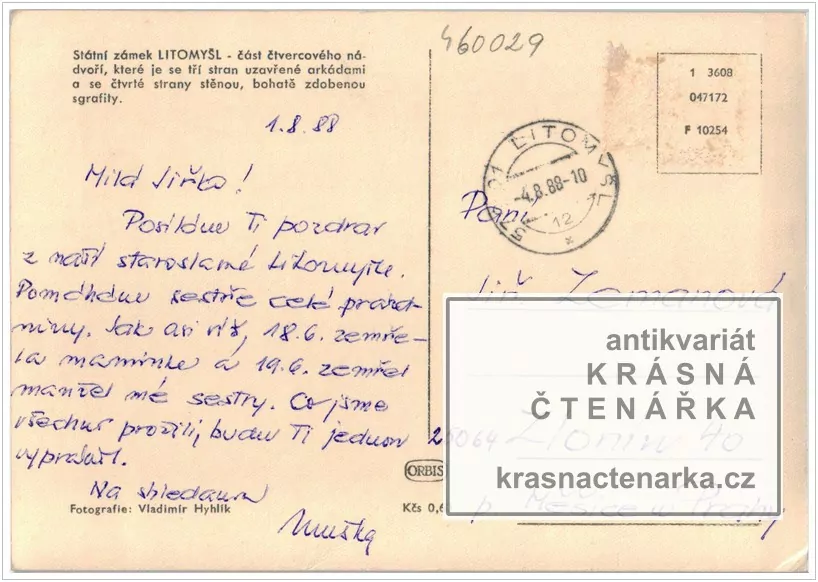 Státní zámek LITOMYŠL - část čtvercového ná-
dvoří, které je se tří stran uzavřené arkádami
a se čtvrté strany stěnou, bohatě zdobenou
sgrafity.
460029
1 3608
047172
F 10254
1.8.88
570 01 LITOMYŠL
-4.8.88-10
12
Milá Jiřko!
Posílám Ti pozdrav
z naší staroslavné Litomyšle.
Pomáhám sestře celé prázd-
niny. Jak asi víš, 18.6. zemře-
la maminka a 19.6. zemřel
manžel mé sestry. Co jsme
všechno prožili, budu Ti jednou
vyprávět.
Na shledanou
Paní
Jiř. Zemanová
antikvariát
KRÁSNÁ
ČTENÁŘKA
krasnactenarka.cz
25064
40
p. Měšice u Prahy
ORBIS
Fotografie: Vladimír Hyhlík
Kčs 0,6